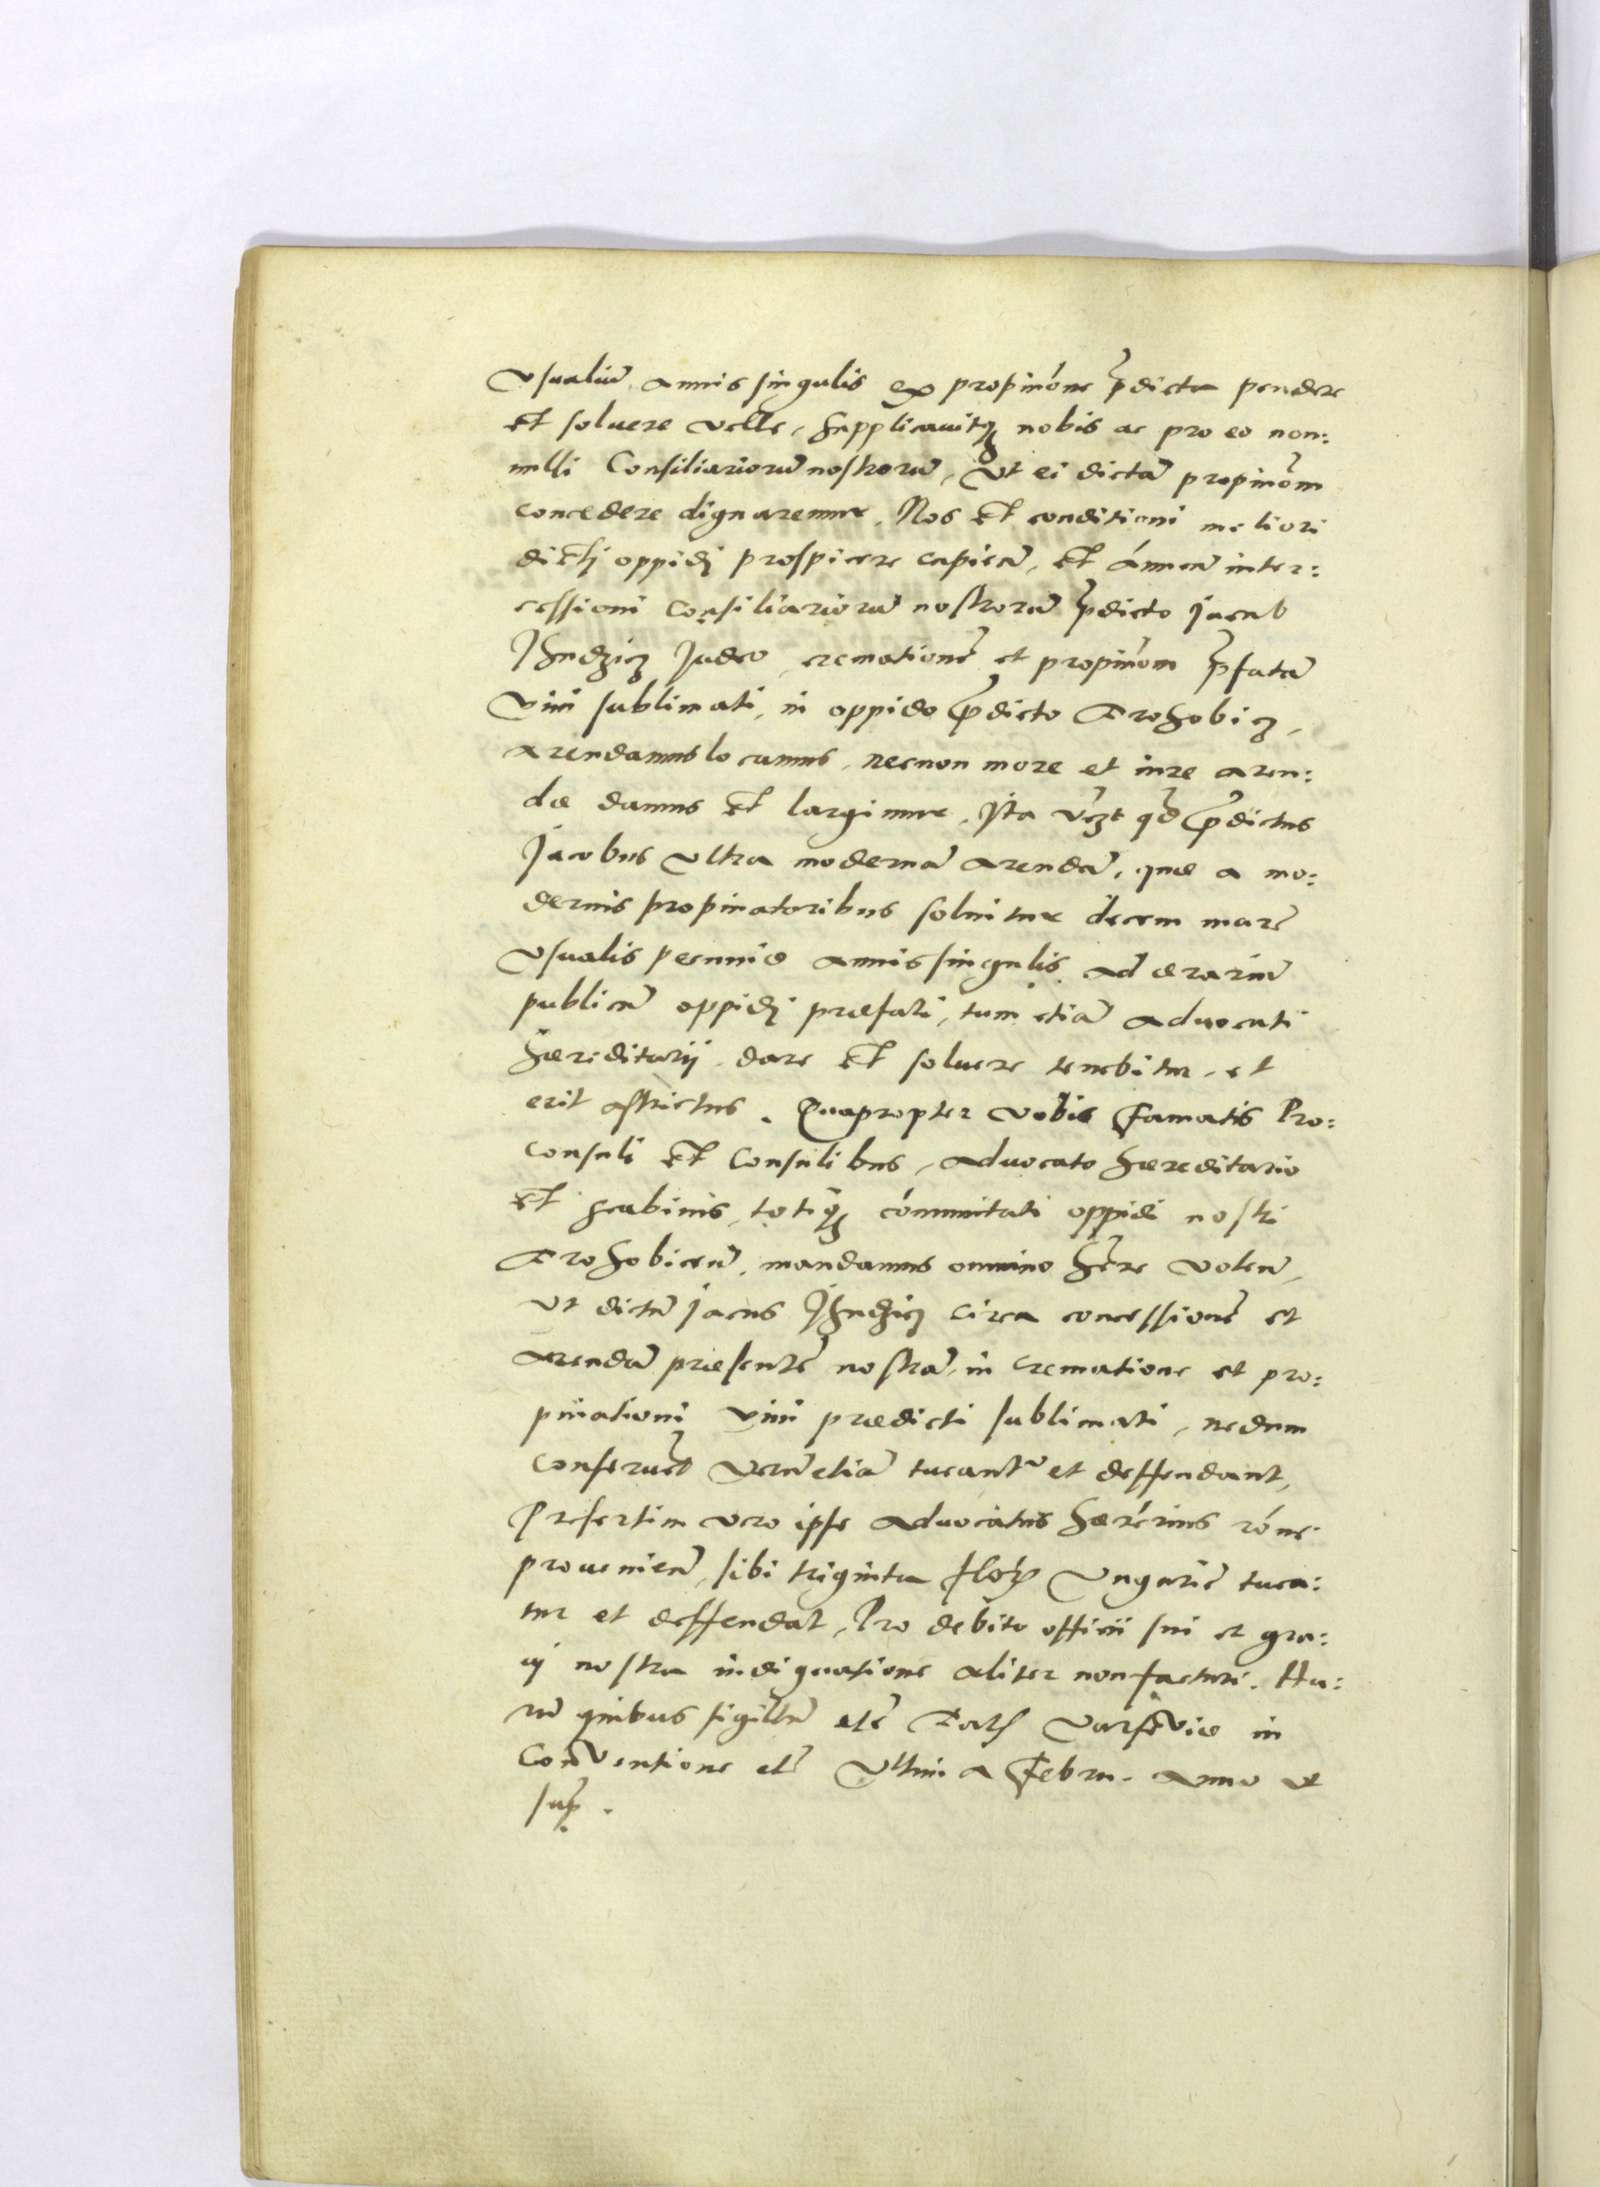 Vsualiũ annis singulis ex propinõne p̃dicta pendere
et soluere velle, supplicauitq₃ nobis ac pro eo non:
nulli Consiliariorũ nostrorũ, Vt ei dictã propinõm
concedere dignaremur. Nos et conditioni meliori
dicti oppidi prospicere cupieñ, et ánnueñ inter:
cessioni consiliariorũ nostrorũ p̃dicto Jacub
Judeo, crematione͂ et propinõm p̃fatã
Vini sublimati, in oppido p̃dicto Drohobicz,
arendamus locamus, necnon more et iure aren:
dæ damus et largimur. Ita vcz͂t qd͂ p̃dictus
Jacobus vltra modernã arendã, quæ a mo:
dernis propinatoribus soluitur decem marc͂
vsualis pecuniæ annis singulis ad ærariũ
publicũ oppidi præfati, tum etiã aduocati
hæreditarij dare et soluere tenebitur, et
erit astrictus. Quapropter vobis famatis Pro:
consuli et Consulibus, aduocato hæreditario
et scabinis, totiq₃ cómmunitati oppidi nostri
Drohobiceñ, mandamus omnino h͂re voleñ,
vt dictũ Jacub circa concessione͂ et
arendã præsente͂ nostrã, in crematione et pro:
pinationi vini prædicti sublimati, nedum
conseruent verũ etiã tueantr et deffendant,
Presertim vero ipse aduocatus hær͂rius rõne
proueníeñ, sibi triginta flor͂ Vngaric͂ tuea:
tur et deffendat, Pro debito officii sui et gra:
ui nostra indignatione aliter non facturi. Ha:
rũ quibus sigillũ etc͂ Dat͂ Varsouiæ in
Conuentione etc͂ Vltima Febru. Anno vt
sup͂.